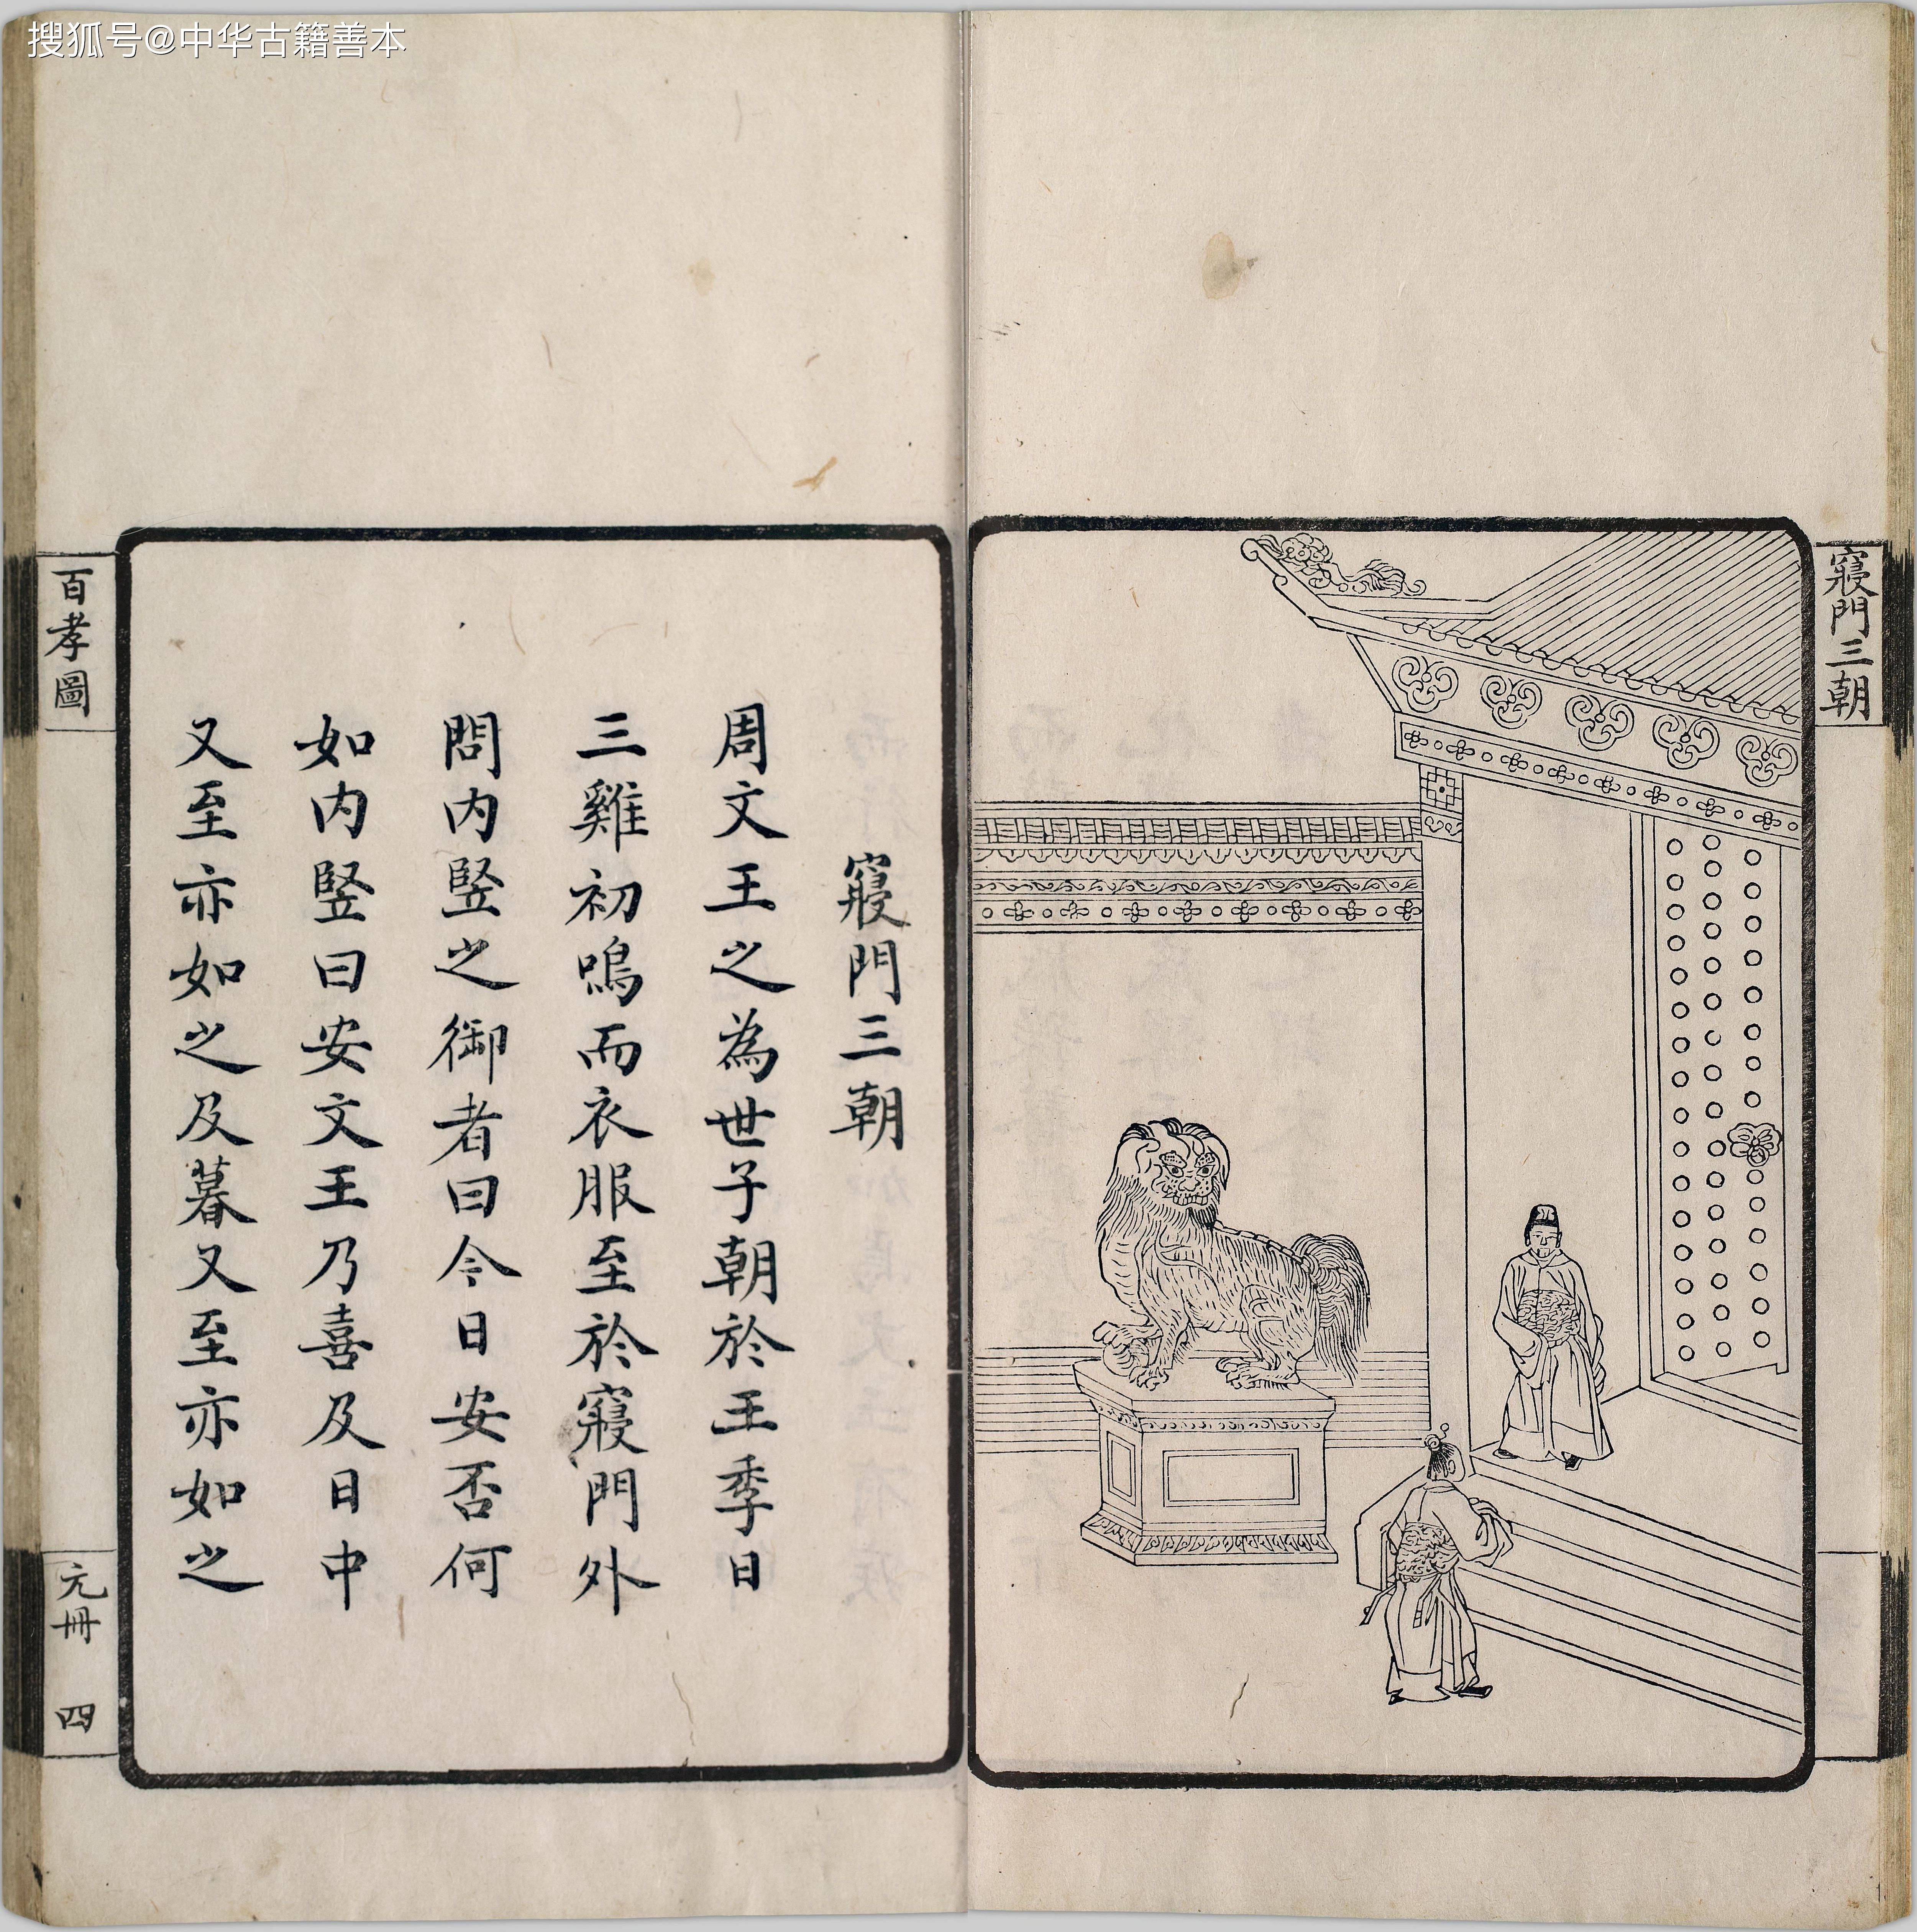 搜狐号@中华古籍善本
寢門三朝
寢門三朝
周文王之為世子朝於王季日
三雞初鳴而衣服至於寢門外
問内竪之御者曰今日安否何
如内竪曰安文王乃喜及日中
又至亦如之及暮又至亦如之
百孝圖
元冊 四